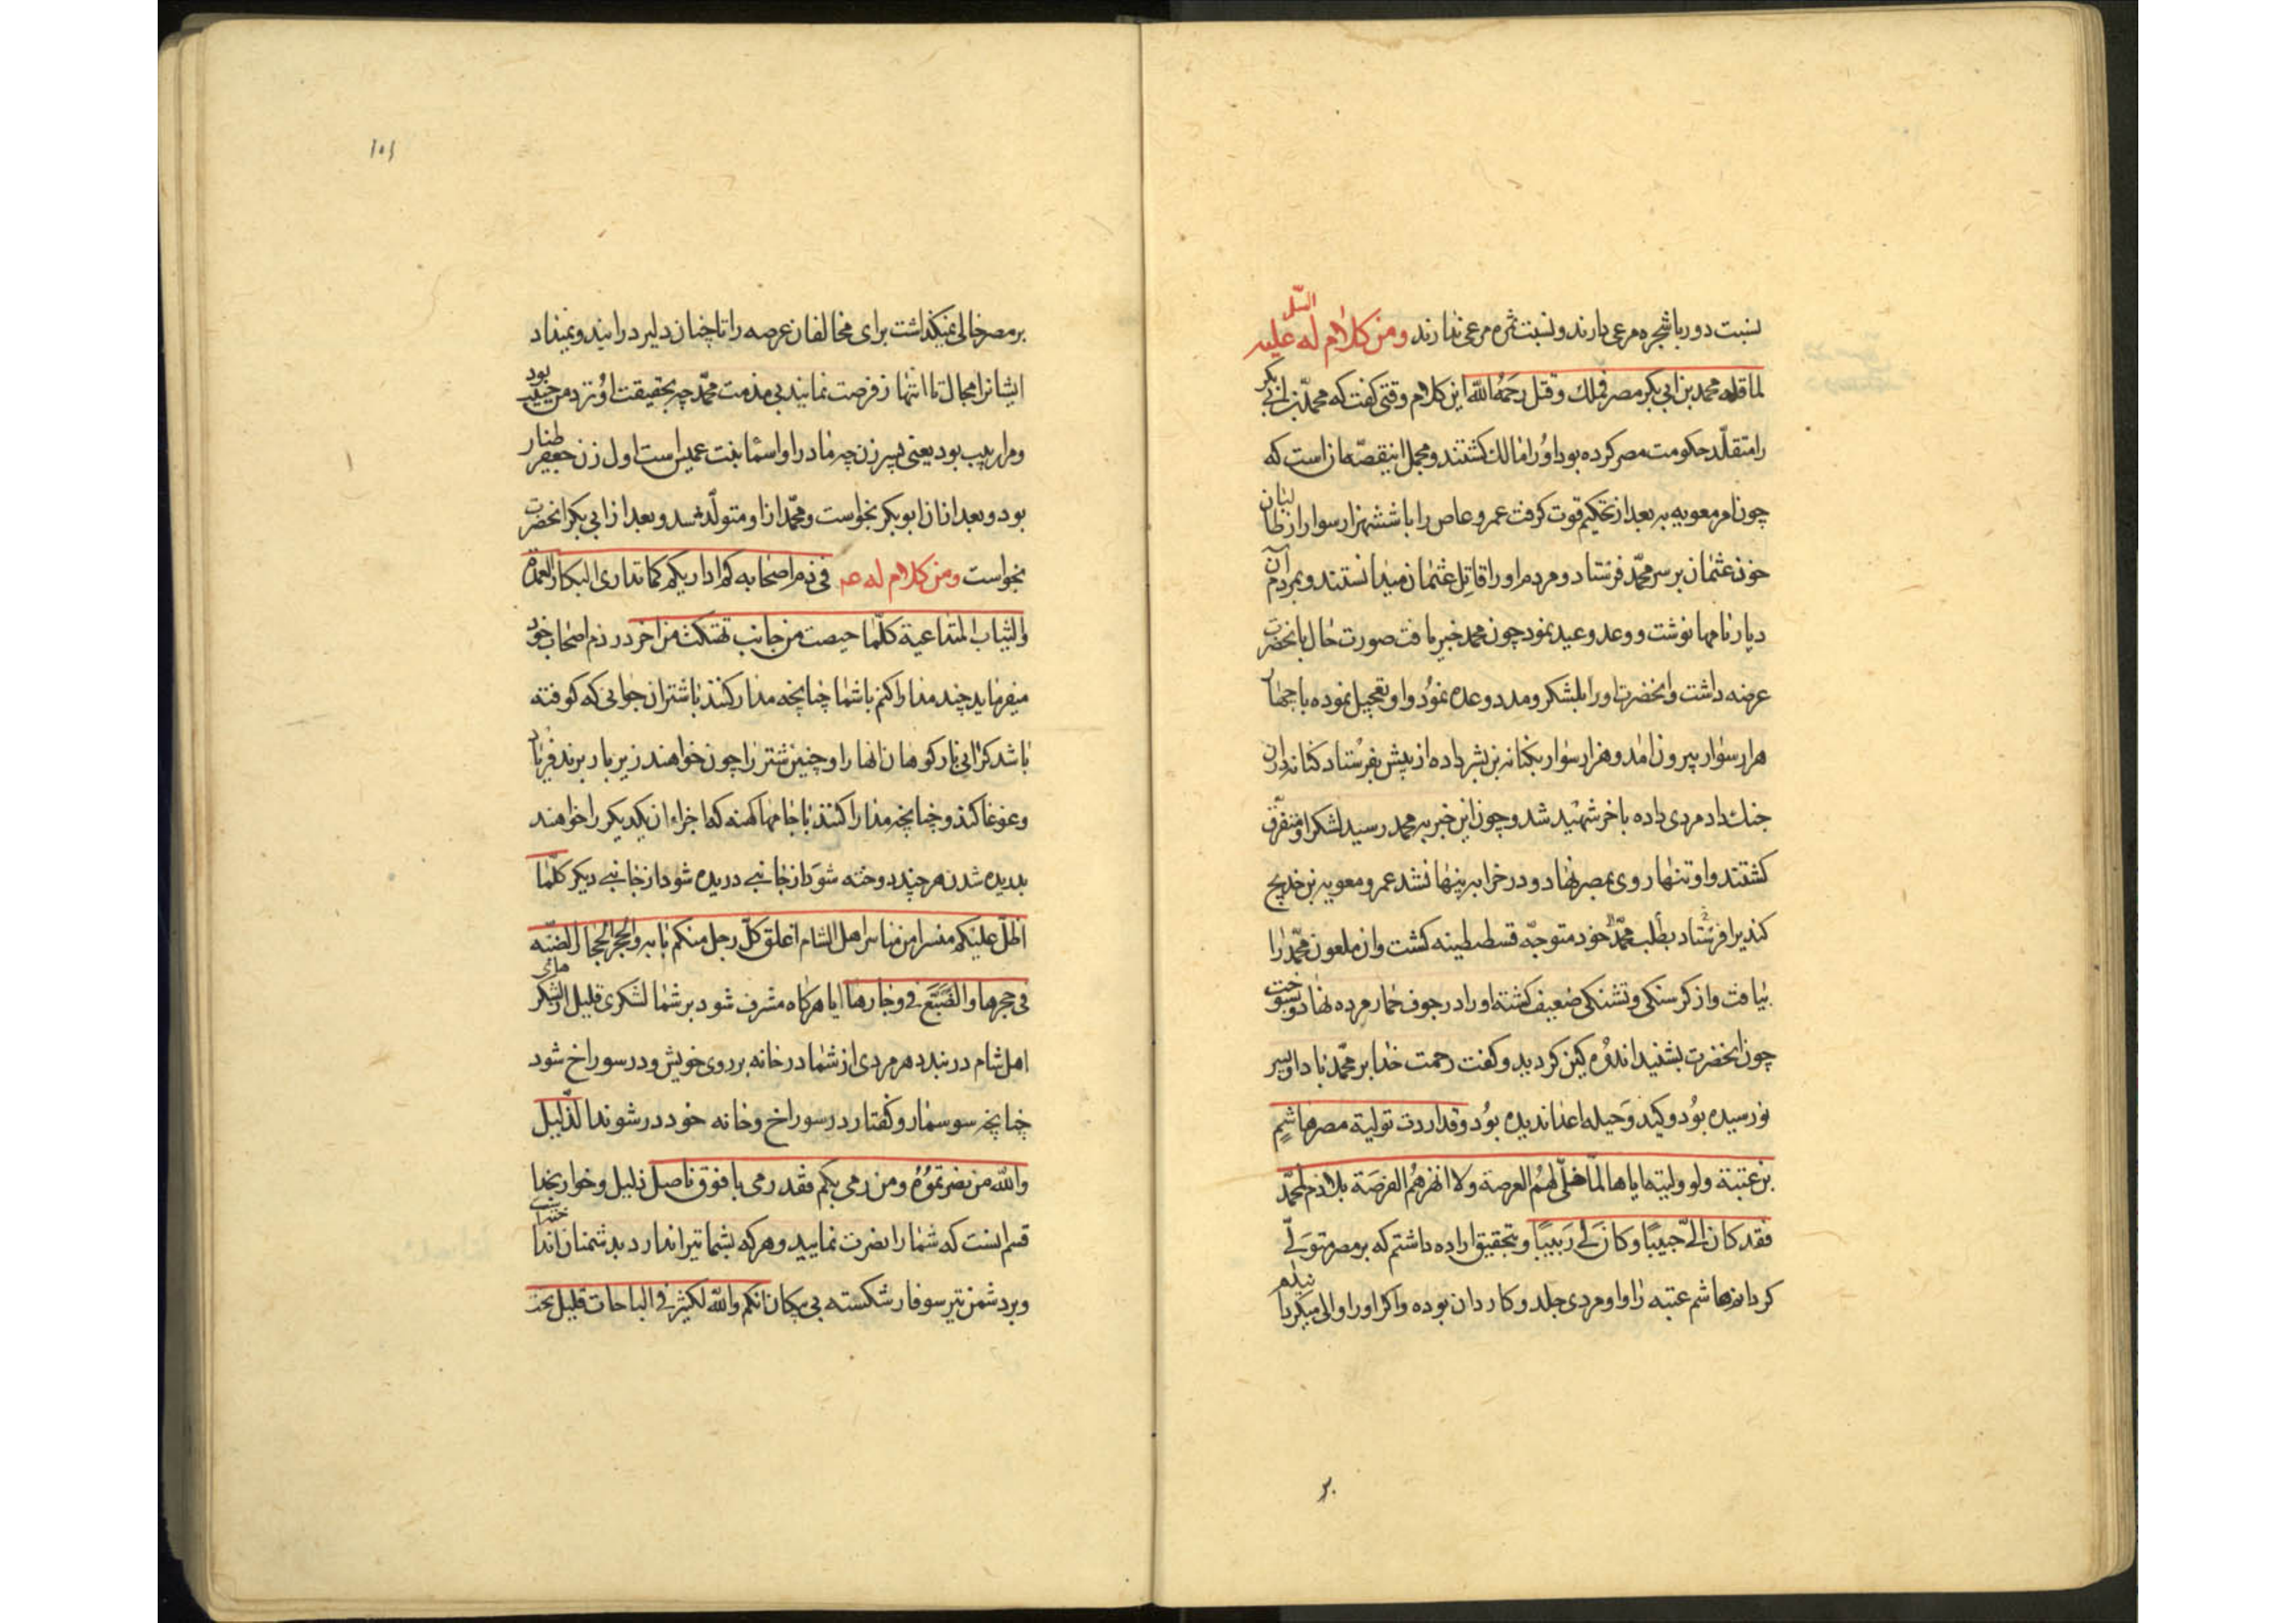 نسبت دور باشجره مرعی دارند و نسبت ثمره مرعی ندارند ومن کلام له علیه السل
لما قلد محمد بن ابی بکر مصر فملک وقتل رحمه الله این کلام وقتی کفت که محمد بن ابی بکر
را متقلد حکومت مصر کرده بود او را نمالک کشتند و مجمل این قصه ان است که
چون امر معویه به بعد از تحکیم قوت کرفت عمرو عاص را با ششهزار سوار از طالبان
خون عثمان بر سر محمد فرستاد و مردم او را قاتل عثمان میدانستند و بمردم آن
دیار نامها نوشت و وعد و وعید نمود چون محمد خبر یافت صورت حال بانحضرت
عرضه داشت وانحضرت او را بلشکر و مدد وعده نمود و او تعجیل نموده با چهار
هزار سوار بیرون امد و هزار سوار بکنانه بن بشر داده از پیش بفرستاد کنانه دران
جنک داد مردی داده باخر شهید شد و چون این خبر به محمد رسید لشکر او متفرق
کشتند و او تنها روی بمصر نهاد و در خرابه پنهان شد عمرو معویه بن خدیج
کندی را فرستاد بطلب محمد و خود متوجه قسطنطینه کشت وان ملعون محمد را
بیافت و از کرسنکی و تشنکی ضعیف کشته او را در جوف حمار مرده نهاد و بسوخت
چون انحضرت بشنید اندوه کین کردید و کفت رحمت خدا بر محمد باد او پسر
نو رسیده بود و کید و حیله اعدا ندیده بود وقد اردت تولیة مصر هاشم
بن عتبة ولو ولیته ایاها لما خلی لهم العرصة ولا انهزهم الفرصة بلا ذم لمحمد
فقد کان الی حبیبا وکان لی ربیبا و بتحقیق اراده داشتم که بر مصر متولی
کردانم هاشم عتبه را و او مردی جلد و کاردان بوده و اکر او را والی میکردانیدم
بر
۱۰۱
بر مصر خالی نمیکذاشت برای مخالفان عرصه را تا چنان دلیر درایند و نمیداد
ایشانرا مجال تا انتهاز فرصت نمایند بی مذمت محمد چه بحقیقت او نزد من حبیب بود
و مرا ربیب بود یعنی پسر زن چه مادر او اسما بنت عمیس است اول زن جعفر طیار
بود و بعد ازان ابوبکر بخواست و محمد ازو متولد شد و بعد از ابی بکر انحضرت
بخواست ومن کلام له عم فی ذم اصحابه کم اداریکم کما تداری البکار العمدة
والثیاب المتداعیة کلما حیصت من جانب تهتکت من اخر در ذم اصحاب خود
میفرماید چند مدارا کنم باشما چنانچه مدارا کنند باشتران جوانی که کوفته
باشد کرانی بار کوهان انها را و چنین شتر را چون خواهند زیر بار برند فریاد
و غوغا کند و چنانچه مدارا کنند باجامهاء کهنه که اجزاء ان یکدیکر را خواهند
بدریده شدن هرچند دوخته شود از جانبی دریده شود از جانبی دیکر کلما
اظل علیکم منسر من مناسر اهل الشام اغلق کل رجل منکم بابه وانجحر انجحار الضبه
فی جحرها والضبع فی وجارها ایا هرکاه مشرف شود بر شما لشکری قلیل از لشکرهای
اهل شام در بندد هر مردی از شما در خانه بر روی خویش و در سوراخ شود
چنانچه سوسمار و کفتار در سوراخ و خانه خود در شوند الذلیل
والله من نصرتموه ومن رمی بکم فقد رمی بافوق ناصل ذلیل و خوار بخدا
قسم انست که شما را نصرت نمایید و هرکه بشما تیر اندازد بدشمنان
و برد شمن تیر سوفار شکسته بی پیکان انکم والله لکثیر فی الباحات قلیل تحت